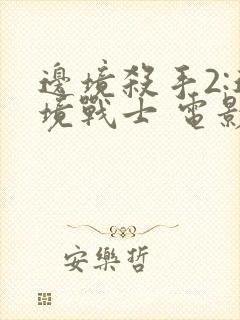 邊境殺手2:邊
境戰士 電影
安樂哲